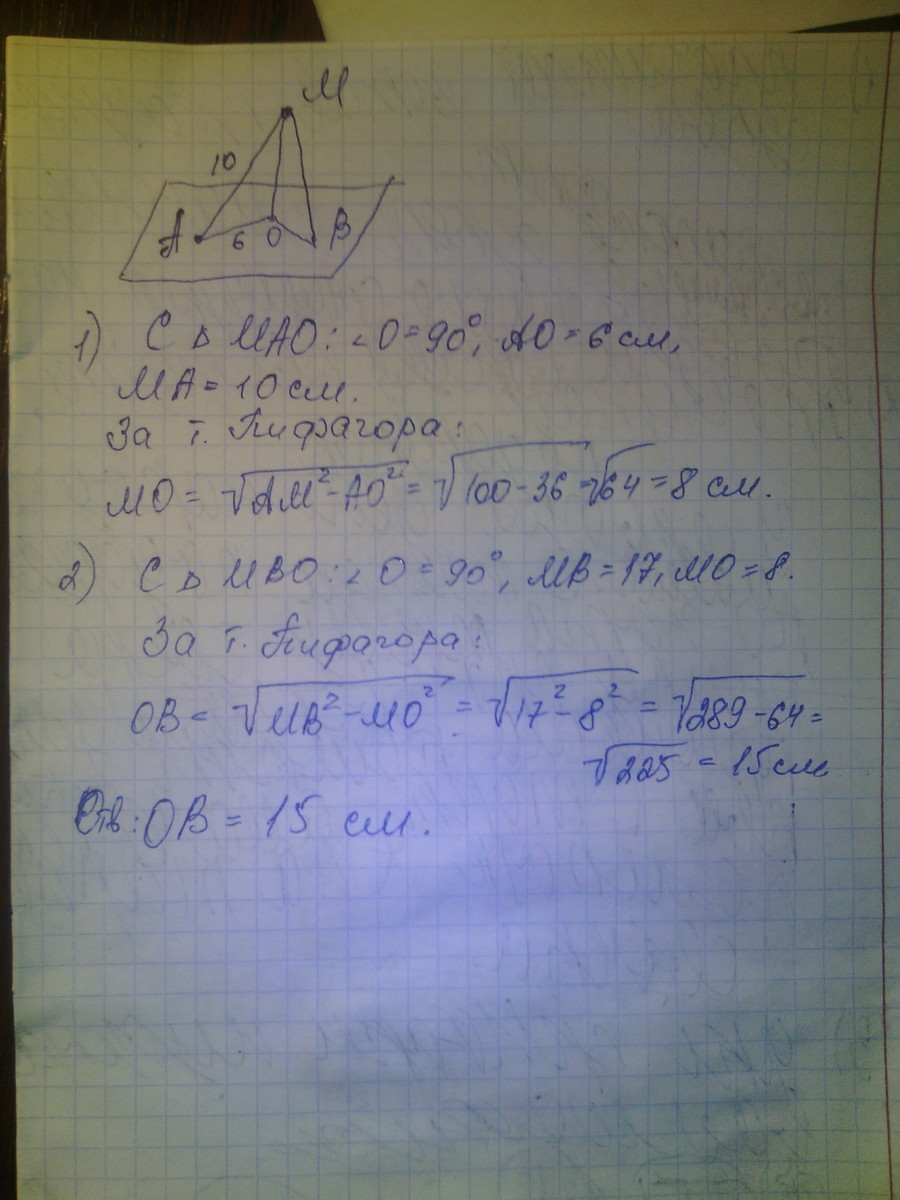 M
10
A 6 O B
1) С Δ MAO: ∠O = 90°, AO = 6 см,
MA = 10 см.
За т. Пифагора:
MO = √AM² - AO² = √100 - 36 = √64 = 8 см.
2) С Δ MBO: ∠O = 90°, MB = 17, MO = 8.
За т. Пифагора:
OB = √MB² - MO² = √17² - 8² = √289 - 64 =
√225 = 15 см
Отв: OB = 15 см.